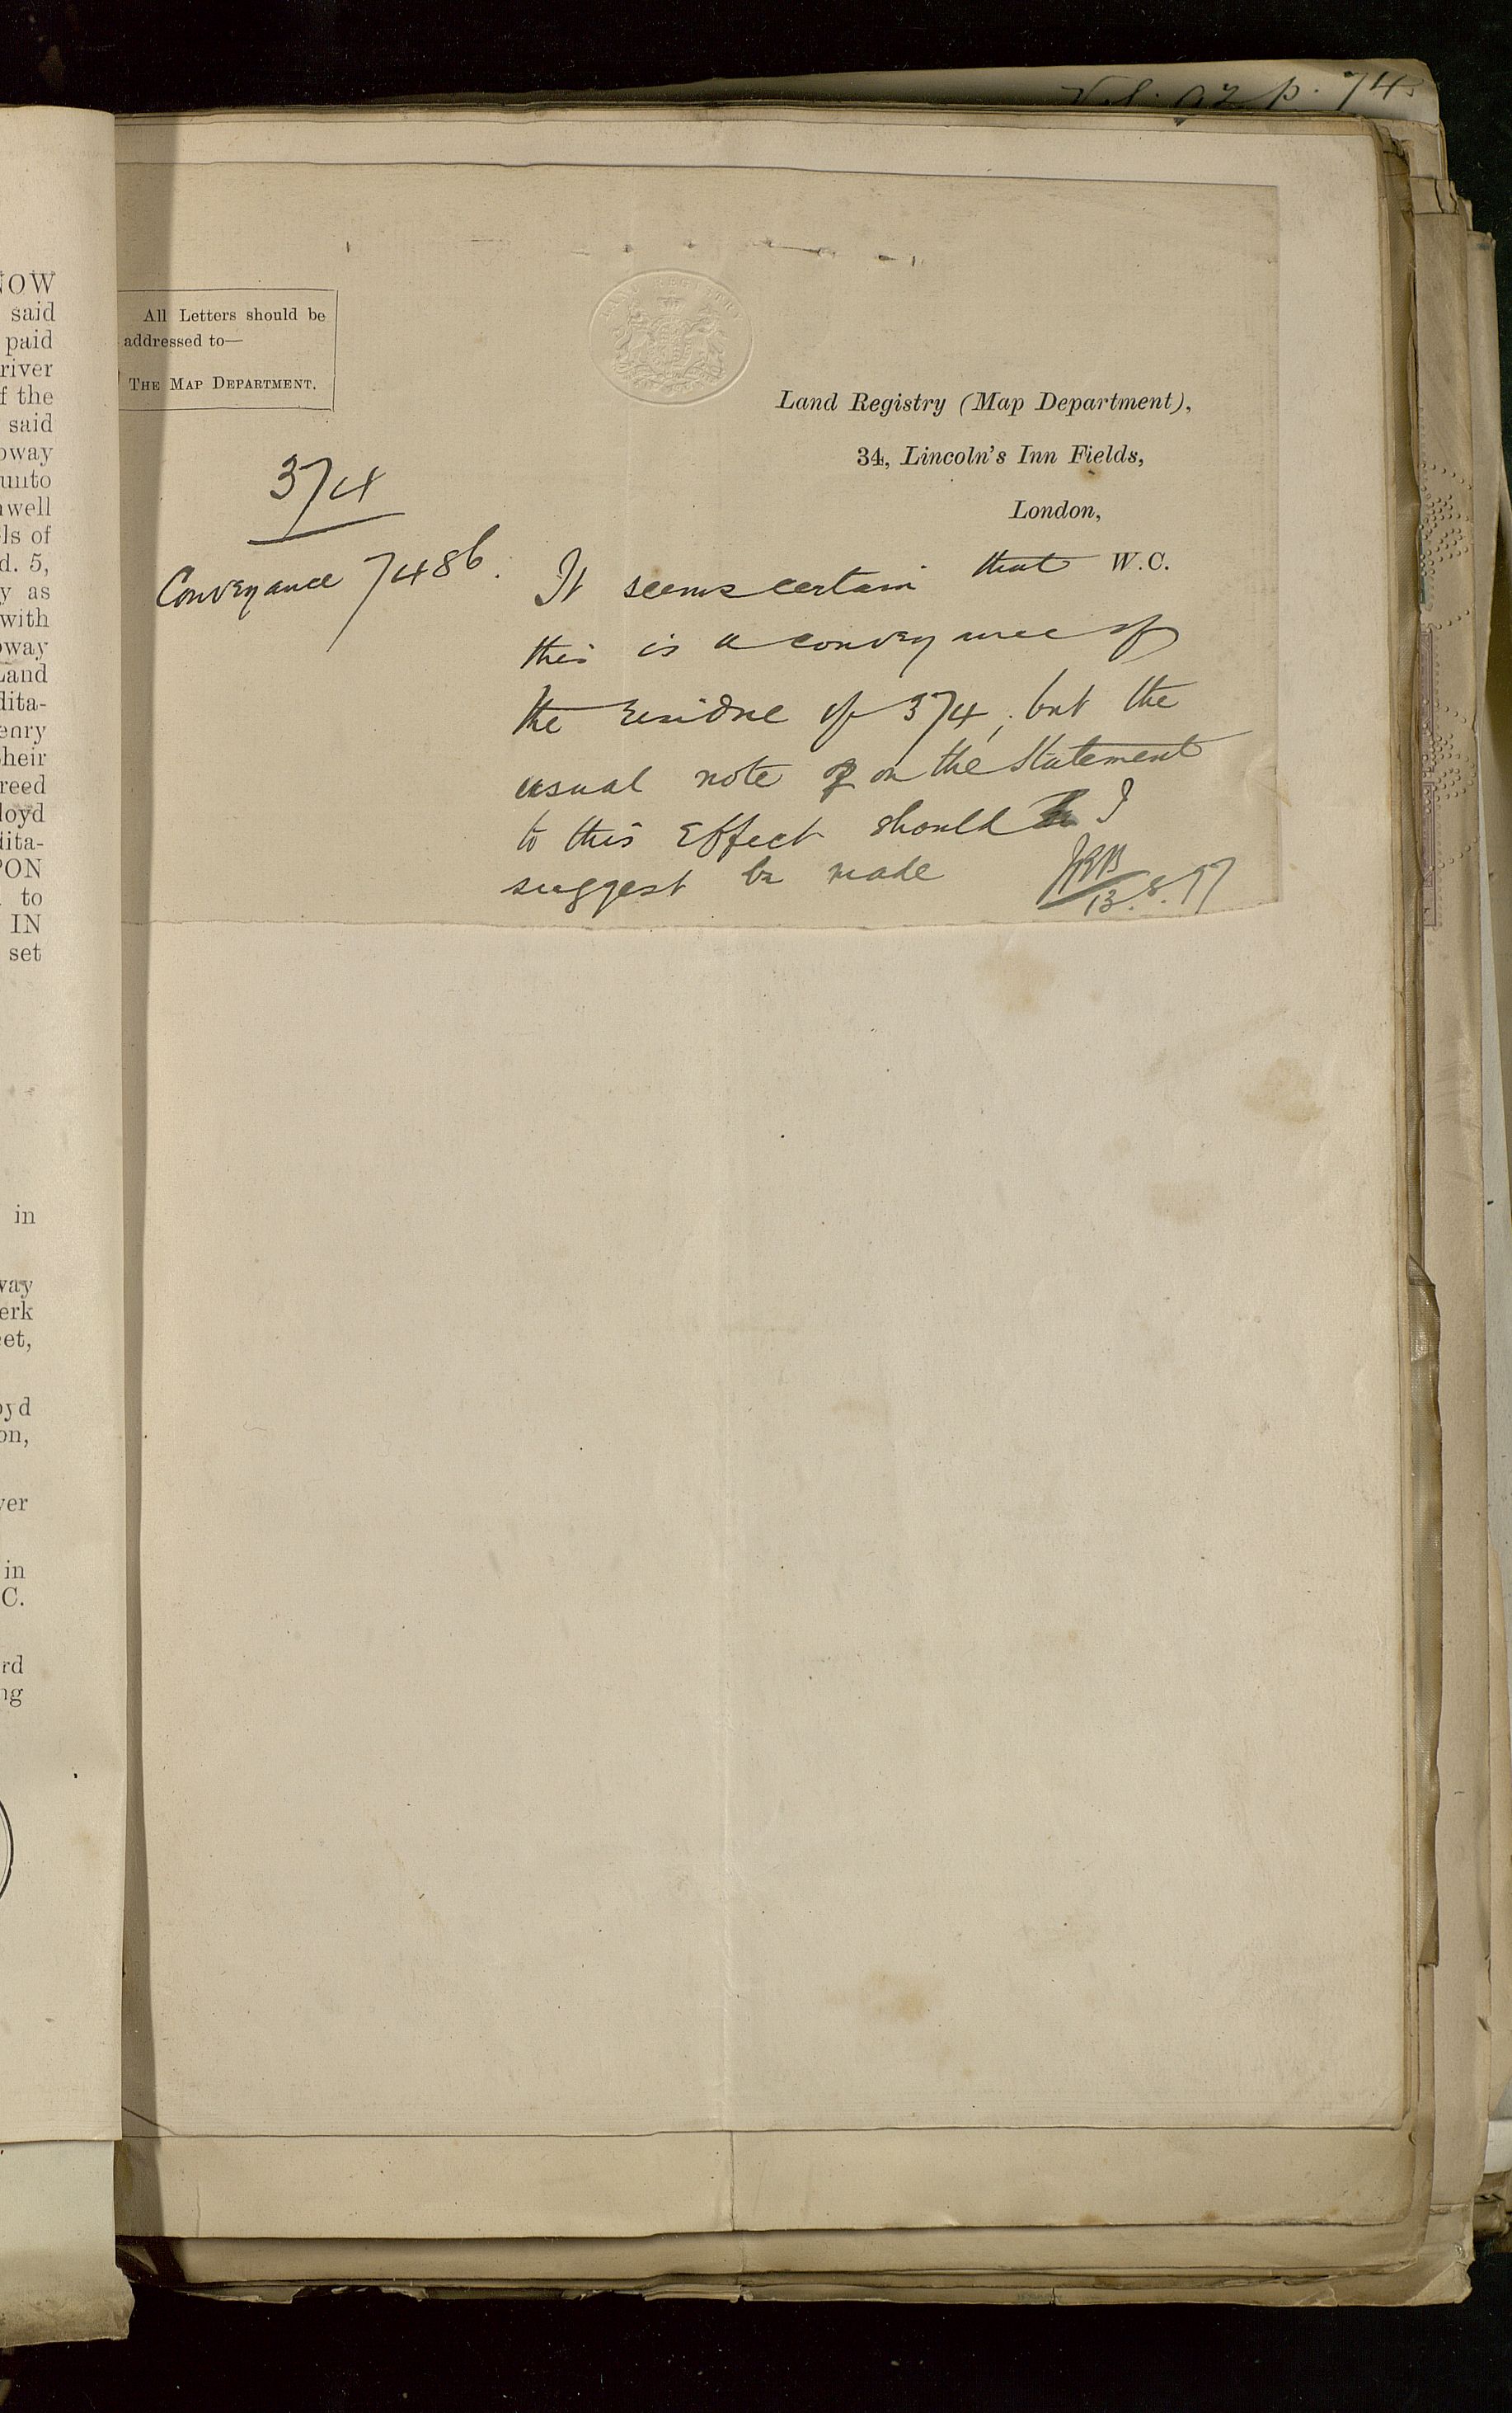 Vol. 92 p. 74
All Letters should be
addressed to—
THE MAP DEPARTMENT.
LAND REGISTRY
Land Registry (Map Department),
34, Lincoln's Inn Fields,
London,
W.C.
374
Conveyance 7486.
It seems certain that
this is a conveyance of
the residue of 374, but the
usual note on the Statement
to this effect should I
suggest be made
13.8.97
NOW
said
paid
river
f the
said
oway
unto
nwell
ls of
d. 5,
y as
with
oway
Land
dita-
enry
heir
reed
loyd
dita-
PON
to
IN
set
in
way
erk
eet,
oyd
on,
ver
in
C.
rd
ng